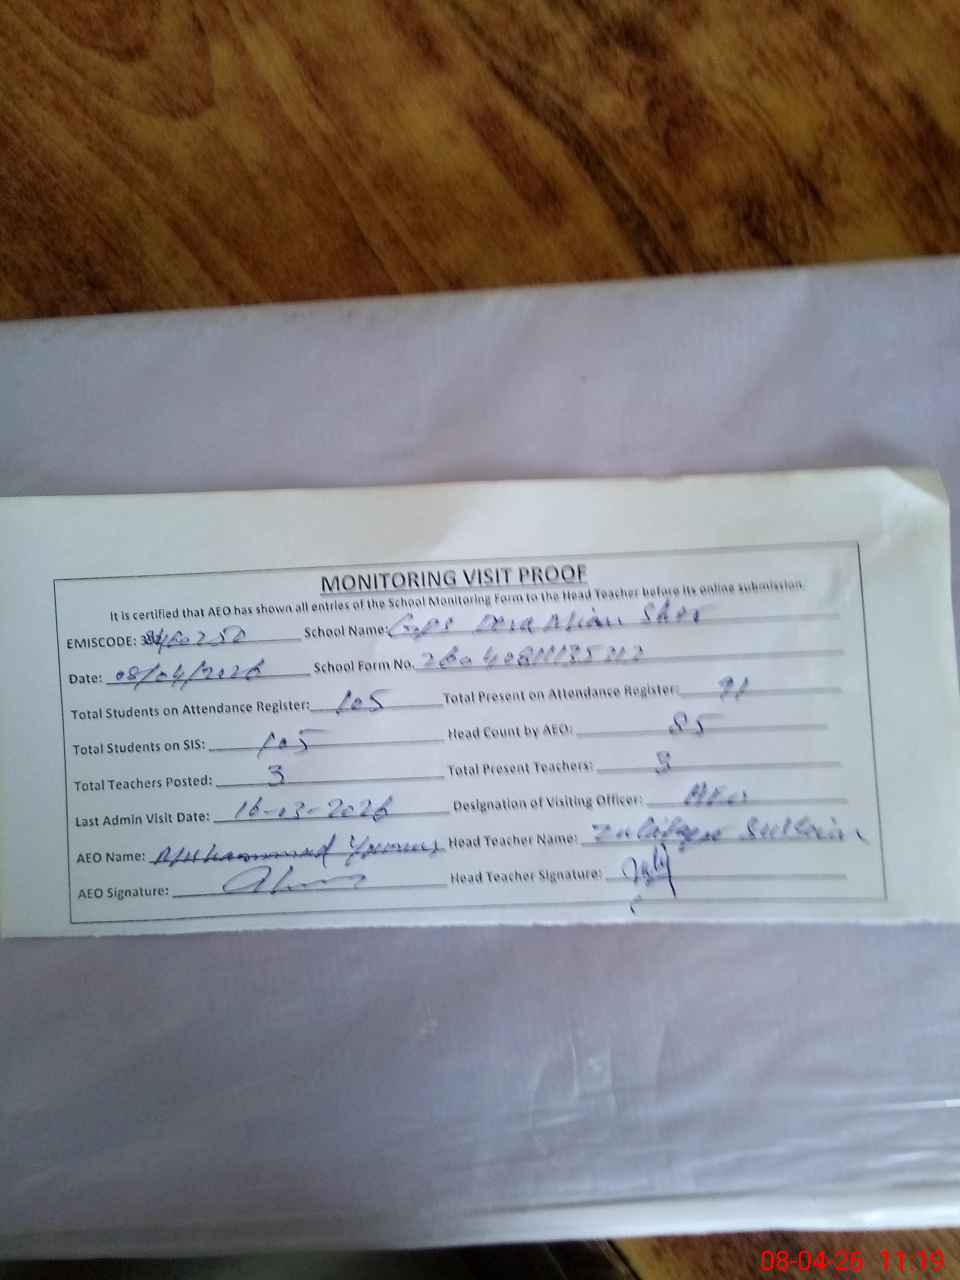 MONITORING VISIT PROOF
It is certified that AEO has shown all entries of the School Monitoring Form to the Head Teacher before its online submission.
EMISCODE: School Name: Dera Mian Sher
Date: 08/04/2026 School Form No.
Total Students on Attendance Register: 105 Total Present on Attendance Register: 91
Total Students on SIS: 105 Head Count by AEO: 85
Total Teachers Posted: 3 Total Present Teachers: 3
Last Admin Visit Date: 16-03-2026 Designation of Visiting Officer: AEO
AEO Name: Muhammad Younus Head Teacher Name: Sultan
AEO Signature: Head Teacher Signature:
08-04-26 11:19